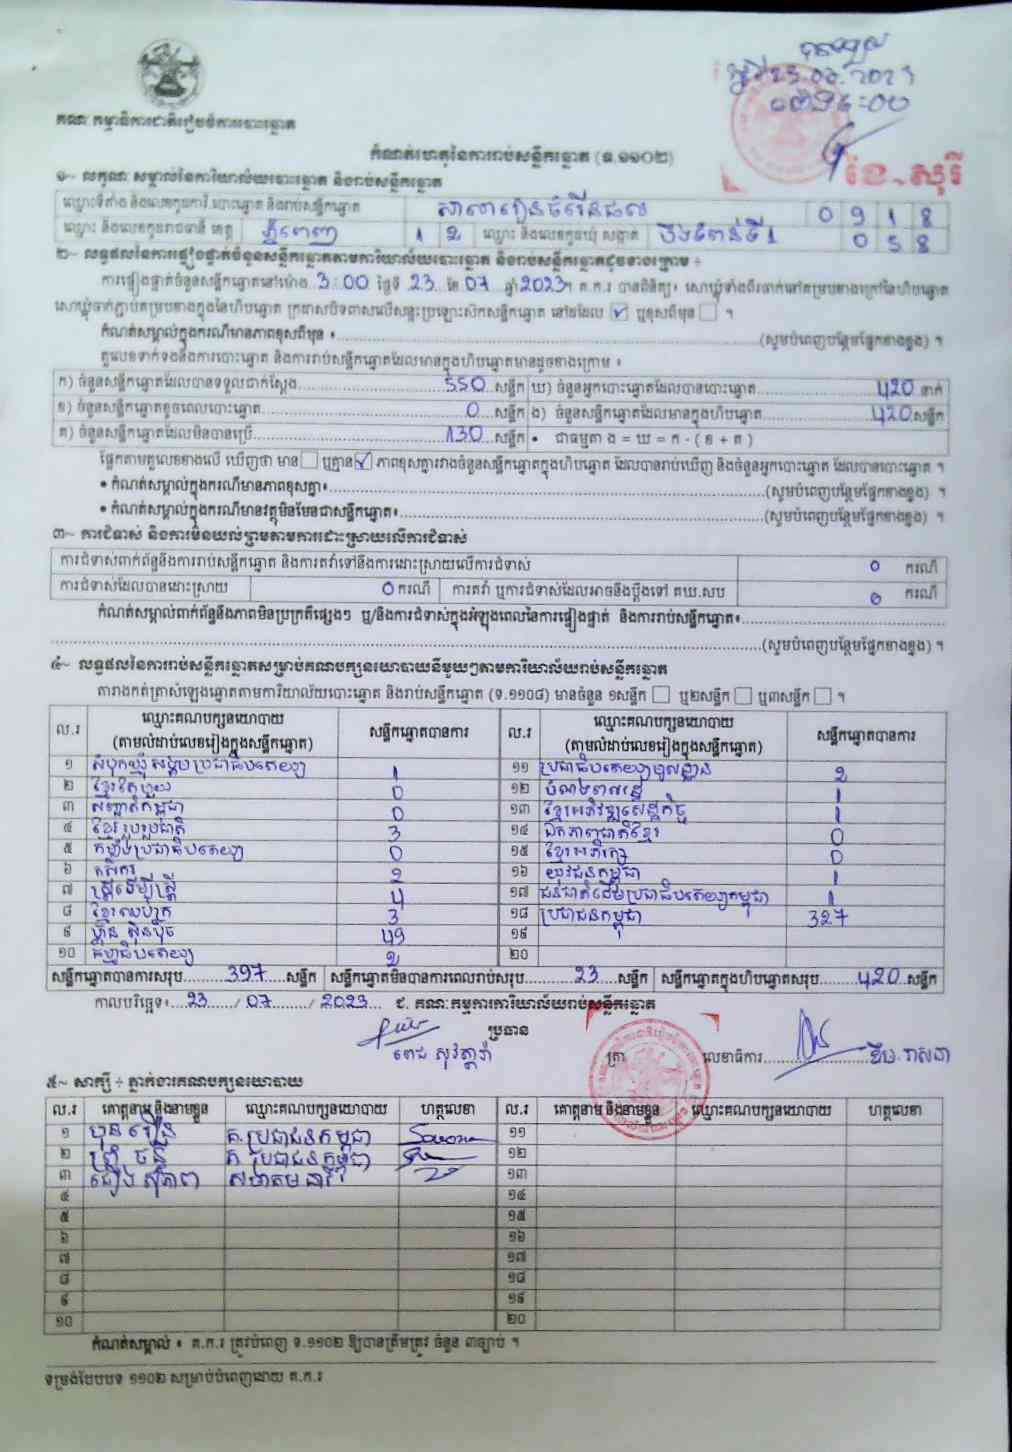 គណៈកម្មាធិការជាតិរៀបចំការបោះឆ្នោត
កំណត់ហេតុនៃការរាប់សន្លឹកឆ្នោត (ទ.១១០២)
ខែ~សុរី
១~ លក្ខណៈសម្គាល់នៃការិយាល័យបោះឆ្នោត និងរាប់សន្លឹកឆ្នោត
ឈ្មោះទីតាំង និងលេខកូដការិ.បោះឆ្នោត និងរាប់សន្លឹកឆ្នោត សាលារៀនចំរើនផល 0 9 1 8
ឈ្មោះ និងលេខកូដរាជធានី ខេត្ត ភ្នំពេញ 1 2 ឈ្មោះ និងលេខកូដឃុំ សង្កាត់ បឹងទំពន់ទី1 0 5 8
២~ លទ្ធផលនៃការផ្ទៀងផ្ទាត់ចំនួនសន្លឹកឆ្នោតតាមការិយាល័យបោះឆ្នោត និងរាប់សន្លឹកឆ្នោតដូចខាងក្រោម ៖
ការផ្ទៀងផ្ទាត់ចំនួនសន្លឹកឆ្នោតនៅម៉ោង 3:00 ថ្ងៃទី 23 ខែ 07 ឆ្នាំ 2023។ គ.ក.រ បានពិនិត្យ៖ សោឃ្លុំទាំងពីរចាក់នៅគម្របខាងក្រៅនៃហិបឆ្នោត
សោឃ្លុំចាក់ភ្ជាប់គម្របខាងក្នុងនៃហិបឆ្នោត ក្រដាសបិទពាសលើសន្ទះប្រឡោះស៊កសន្លឹកឆ្នោត នៅដដែល ☑ ឬខុសពីមុន ☐ ។
កំណត់សម្គាល់ក្នុងករណីមានភាពខុសពីមុន ៖ (សូមបំពេញបន្ថែមផ្នែកខាងខ្នង) ។
តួលេខទាក់ទងនឹងការបោះឆ្នោត និងការរាប់សន្លឹកឆ្នោតដែលមានក្នុងហិបឆ្នោតមានដូចខាងក្រោម ៖
ក) ចំនួនសន្លឹកឆ្នោតដែលបានទទួលជាក់ស្តែង 550 សន្លឹក ឃ) ចំនួនអ្នកបោះឆ្នោតដែលបានបោះឆ្នោត 420 នាក់
ខ) ចំនួនសន្លឹកឆ្នោតខូចពេលបោះឆ្នោត 0 សន្លឹក ង) ចំនួនសន្លឹកឆ្នោតដែលមានក្នុងហិបឆ្នោត 420 សន្លឹក
គ) ចំនួនសន្លឹកឆ្នោតដែលមិនបានប្រើ 130 សន្លឹក • ជាធម្មតា ង = ឃ = ក - ( ខ + គ )
ផ្អែកតាមតួលេខខាងលើ ឃើញថា មាន ☐ ឬគ្មាន ☑ ភាពខុសគ្នារវាងចំនួនសន្លឹកឆ្នោតក្នុងហិបឆ្នោត ដែលបានរាប់ឃើញ និងចំនួនអ្នកបោះឆ្នោត ដែលបានបោះឆ្នោត ។
• កំណត់សម្គាល់ក្នុងករណីមានភាពខុសគ្នា៖ (សូមបំពេញបន្ថែមផ្នែកខាងខ្នង) ។
• កំណត់សម្គាល់ក្នុងករណីមានវត្ថុមិនមែនជាសន្លឹកឆ្នោត៖ (សូមបំពេញបន្ថែមផ្នែកខាងខ្នង) ។
៣~ ការជំទាស់ និងការមិនយល់ព្រមតាមការដោះស្រាយលើការជំទាស់
ការជំទាស់ពាក់ព័ន្ធនឹងការរាប់សន្លឹកឆ្នោត និងការតវ៉ាទៅនឹងការដោះស្រាយលើការជំទាស់ 0 ករណី
ការជំទាស់ដែលបានដោះស្រាយ 0 ករណី ការតវ៉ា ឬការជំទាស់ដែលអាចនឹងប្តឹងទៅ គឃ.សប 0 ករណី
កំណត់សម្គាល់ពាក់ព័ន្ធនឹងភាពមិនប្រក្រតីផ្សេងៗ ឬ/និងការជំទាស់ក្នុងអំឡុងពេលនៃការផ្ទៀងផ្ទាត់ និងការរាប់សន្លឹកឆ្នោត៖
(សូមបំពេញបន្ថែមផ្នែកខាងខ្នង) ។
៤~ លទ្ធផលនៃការរាប់សន្លឹកឆ្នោតសម្រាប់គណបក្សនយោបាយនីមួយៗតាមការិយាល័យរាប់សន្លឹកឆ្នោត
តារាងកត់ត្រាសំឡេងឆ្នោតតាមការិយាល័យបោះឆ្នោត និងរាប់សន្លឹកឆ្នោត (ទ.១១០៨) មានចំនួន ១សន្លឹក ☐ ឬ២សន្លឹក ☐ ឬ៣សន្លឹក ☐ ។
ល.រ ឈ្មោះគណបក្សនយោបាយ (តាមលំដាប់លេខរៀងក្នុងសន្លឹកឆ្នោត) សន្លឹកឆ្នោតបានការ ល.រ ឈ្មោះគណបក្សនយោបាយ (តាមលំដាប់លេខរៀងក្នុងសន្លឹកឆ្នោត) សន្លឹកឆ្នោតបានការ
១ សំបុកឃ្មុំសង្គមប្រជាធិបតេយ្យ 1 ១១ ប្រជាធិបតេយ្យមូលដ្ឋាន 2
២ ខ្មែរតែមួយ 0 ១២ បំណងពលរដ្ឋ 1
៣ សញ្ជាតិកម្ពុជា 0 ១៣ ខ្មែរអភិវឌ្ឍសេដ្ឋកិច្ច 1
៤ ខ្មែររួបរួមជាតិ 3 ១៤ ឯកភាពជាតិខ្មែរ 0
៥ កម្លាំងប្រជាធិបតេយ្យ 0 ១៥ ខ្មែរអភិរក្ស 0
៦ កសិករ 2 ១៦ យុវជនកម្ពុជា 1
៧ ស្ត្រីដើម្បីស្ត្រី 4 ១៧ ជនជាតិដើមប្រជាធិបតេយ្យកម្ពុជា 1
៨ ខ្មែរឈប់ក្រ 3 ១៨ ប្រជាជនកម្ពុជា 327
៩ ហ៊្វុនស៊ិនប៉ិច 49 ១៩
១០ ធម្មាធិបតេយ្យ 2 ២០
សន្លឹកឆ្នោតបានការសរុប 397 សន្លឹក សន្លឹកឆ្នោតមិនបានការពេលរាប់សរុប 23 សន្លឹក សន្លឹកឆ្នោតក្នុងហិបឆ្នោតសរុប 420 សន្លឹក
កាលបរិច្ឆេទ៖ 23 / 07 / 2023 ជ. គណៈកម្មការការិយាល័យរាប់សន្លឹកឆ្នោត
ប្រធាន ត្រា លេខាធិការ
៥~ សាក្សី ៖ ភ្នាក់ងារគណបក្សនយោបាយ
ល.រ គោត្តនាម និងនាមខ្លួន ឈ្មោះគណបក្សនយោបាយ ហត្ថលេខា ល.រ គោត្តនាម និងនាមខ្លួន ឈ្មោះគណបក្សនយោបាយ ហត្ថលេខា
១ គ.ប្រជាជនកម្ពុជា ១១
២ គ ប្រជាជនកម្ពុជា ១២
៣ ១៣
៤ ១៤
៥ ១៥
៦ ១៦
៧ ១៧
៨ ១៨
៩ ១៩
១០ ២០
កំណត់សម្គាល់ ៖ គ.ក.រ ត្រូវបំពេញ ទ.១១០២ ឱ្យបានត្រឹមត្រូវ ចំនួន ៣ច្បាប់ ។
ទម្រង់បែបបទ ១១០២ សម្រាប់បំពេញដោយ គ.ក.រ